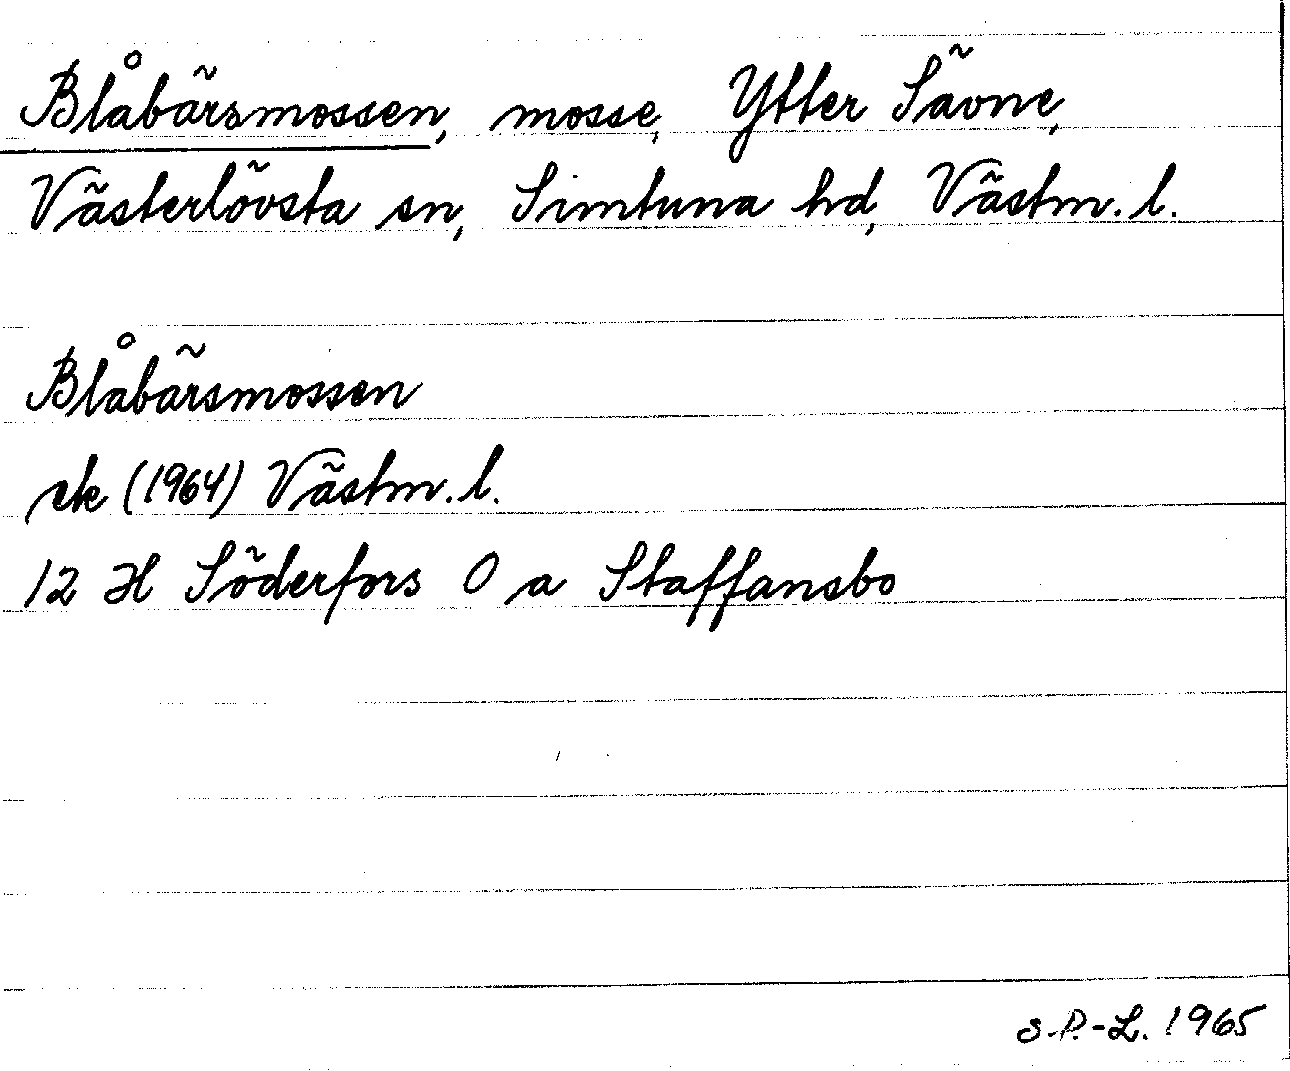 Blåbärsmossen, mosse, Ytter Sävne,
Västerlövsta sn, Simtuna hd, Västm. l.
Blåbärsmossen
ek (1964) Västm. l.
12 H Söderfors 0 a Staffansbo
S.P.-L. 1965